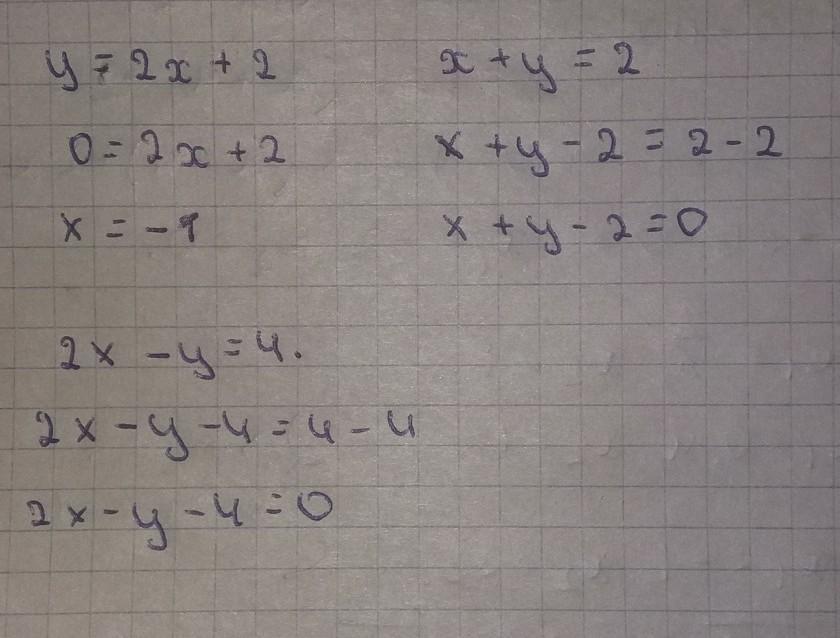 y = 2x + 2
0 = 2x + 2
x = -1
x + y = 2
x + y - 2 = 2 - 2
x + y - 2 = 0
2x - y = 4.
2x - y - 4 = 4 - 4
2x - y - 4 = 0